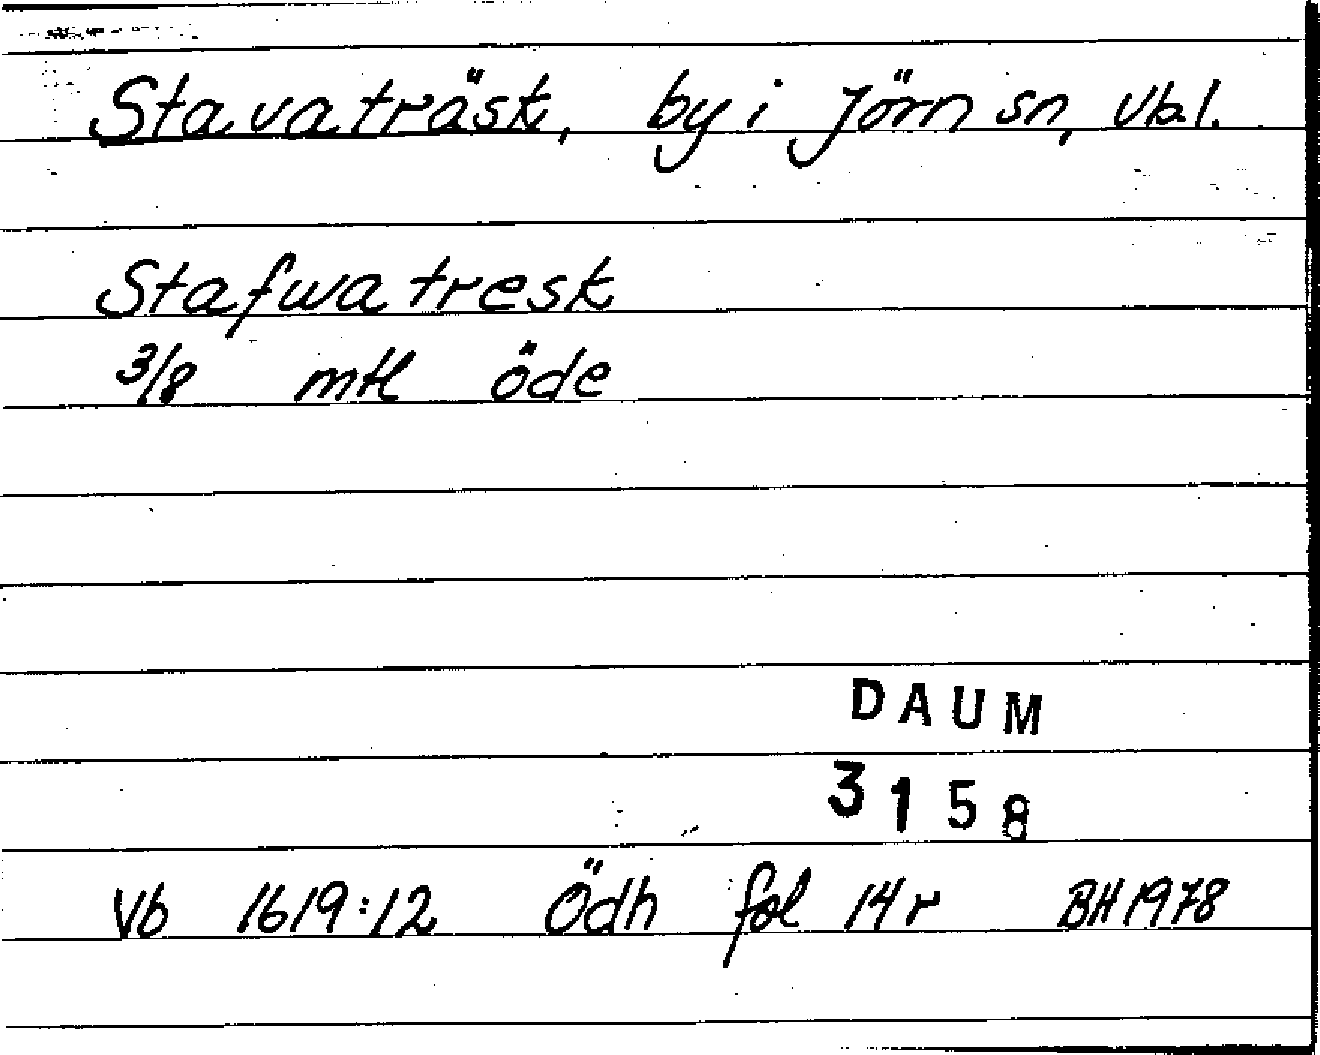 Stavaträsk, by i Jörn sn, Vb.l.
Stafwatresk
3/8 mtl öde
DAUM
3158
Vb 1619:12 Ödh fol 14 r BH 1978